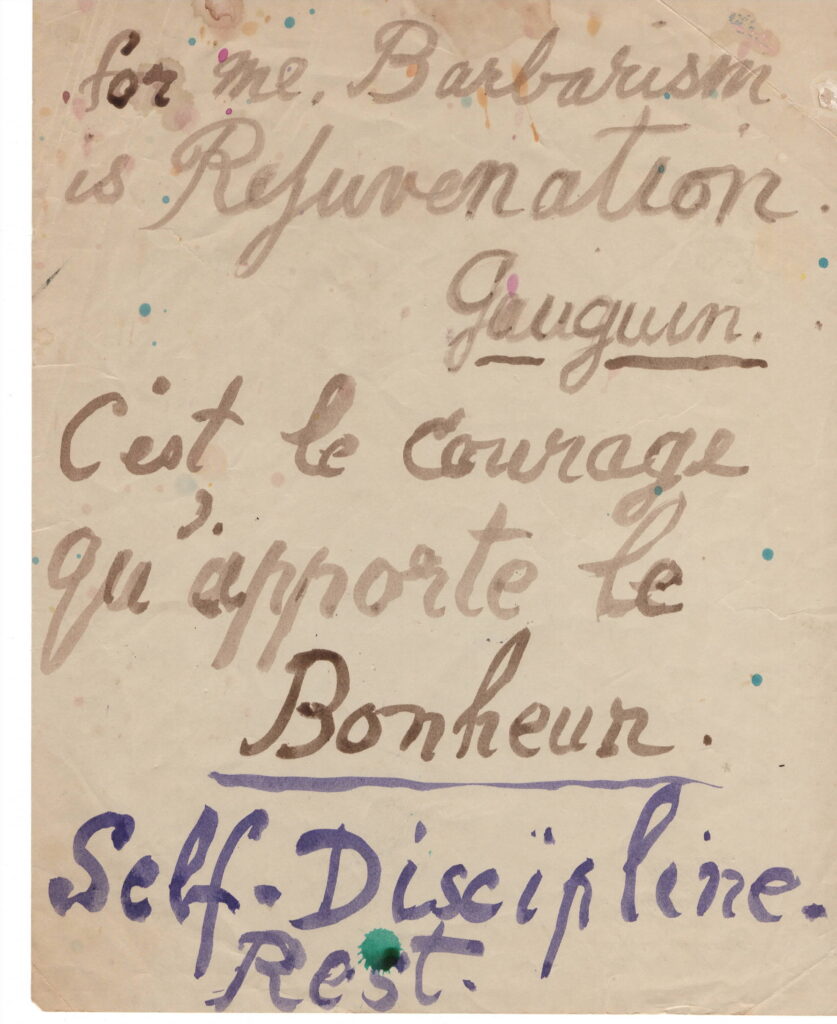 for me. Barbarism
is Rejuvenation.
Gauguin.
C'est le Courage
qu'apporte le
Bonheur.
Self-Discipline.
Rest.